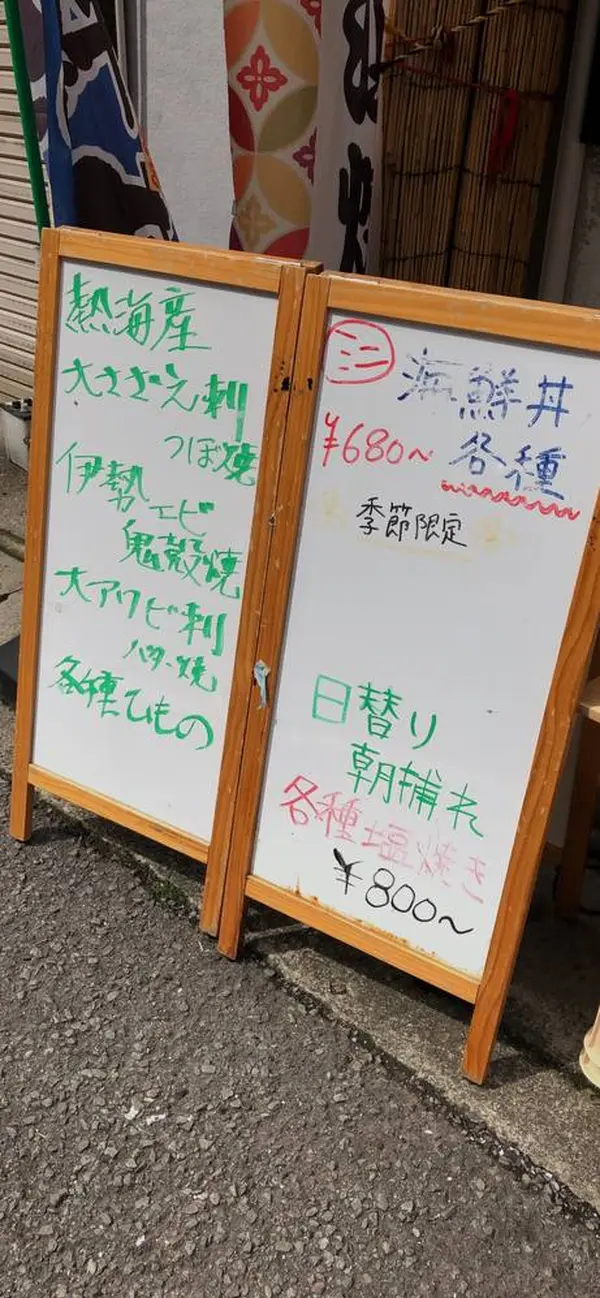 熱海産
大さざえ刺
つぼ焼
伊勢エビ
鬼殻焼
大アワビ刺
バター焼
各種ひもの
ミニ
海鮮丼
¥680〜 各種
季節限定
日替り
朝捕れ
各種塩焼き
¥800〜